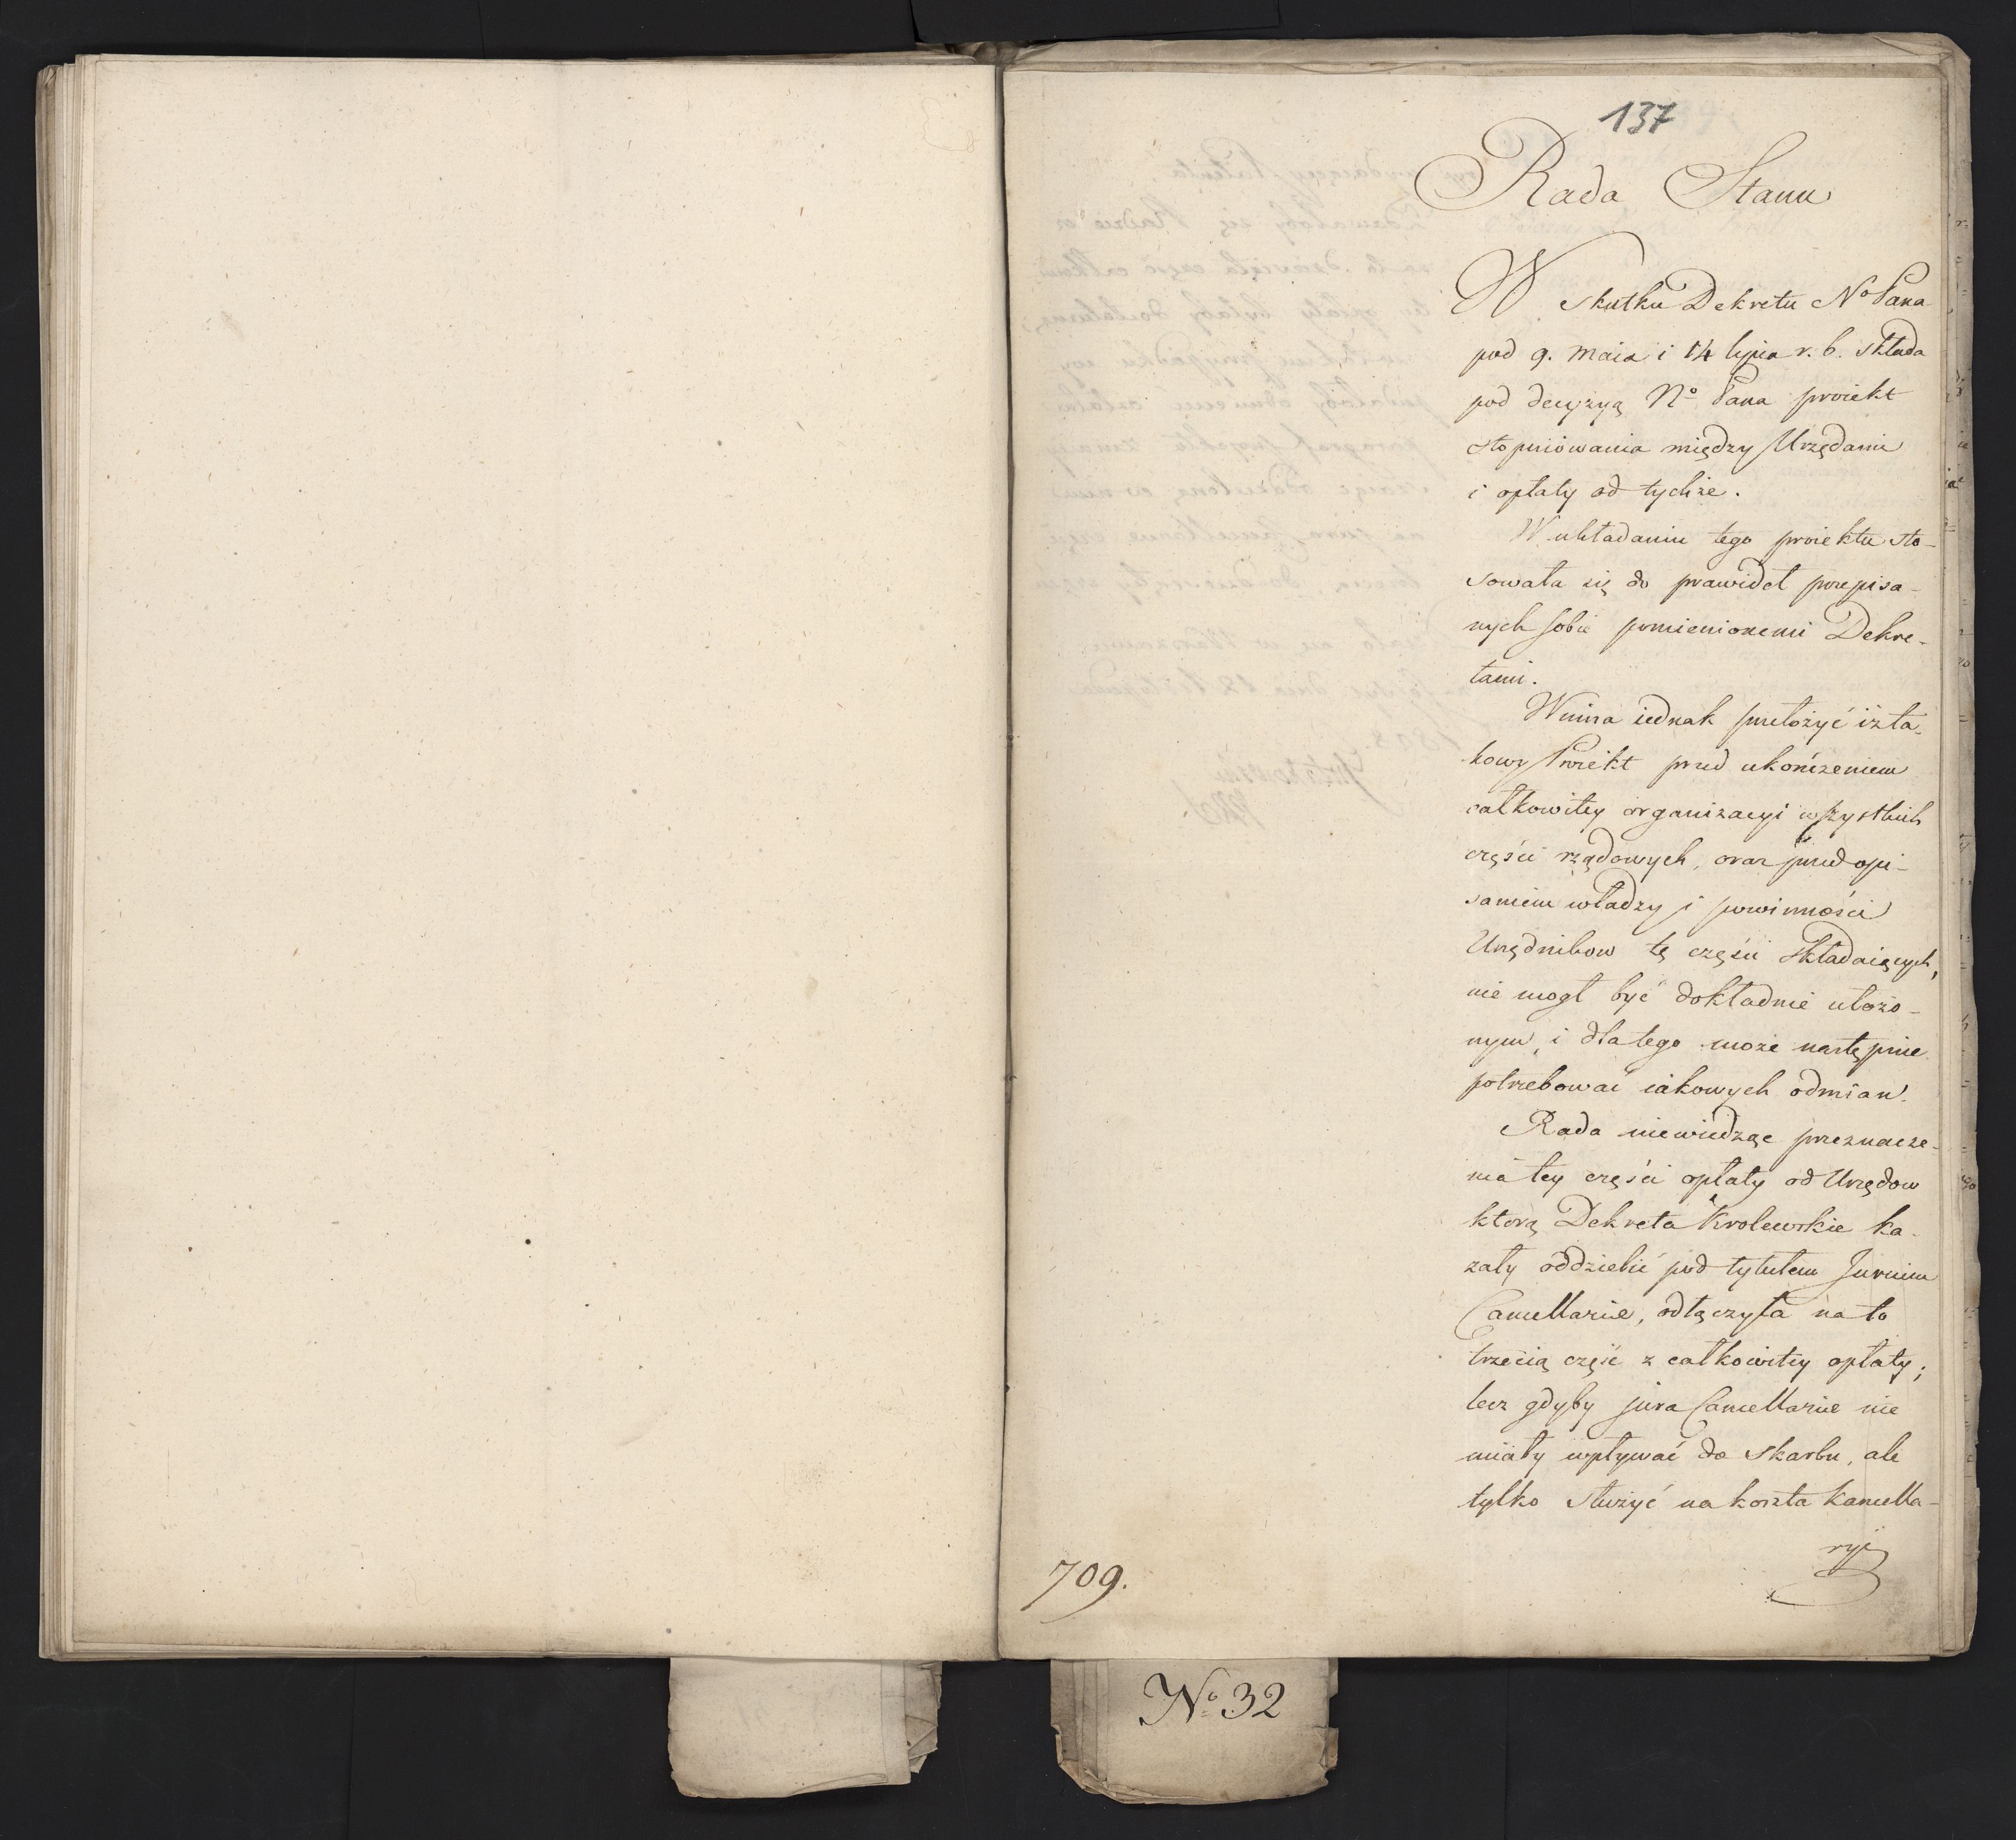 137
Rada Stanu
W skutku Dekretu No Pana
pod 9. Maia i 14 lipca r. b. składa
pod decyzyą No Pana proiekt
stopniowania między Urzędami
i opłaty od tychże.
W układaniu tego proiektu sto-
sowała się do prawideł przepisa-
nych sobie pomienionemi Dekre-
tami.
Winna iednak przełożyć iż ta-
kowy Proiekt przed ukończeniem
całkowitey organizacyi wszystkich
części rządowych, oraz przed opi-
saniem władzy i powinności
Urzędnikow tę części składaiących,
nie mogł być dokładnie ułożo-
nym, i dla tego może następnie
potrzebować iakowych odmian.
Rada niewiedząc przeznacze-
nia tey części opłaty od Urzędow
ktorą Dekreta Krolewskie ka-
zały oddzielić pod tytułem Jurium
Cancellariæ, odłączyła na to
trzecią część z całkowitey opłaty;
lecz gdyby jura Cancellariæ nie
miały wpływać do skarbu, ale
tylko służyć na koszta kancella-
ryi
709.
No 32